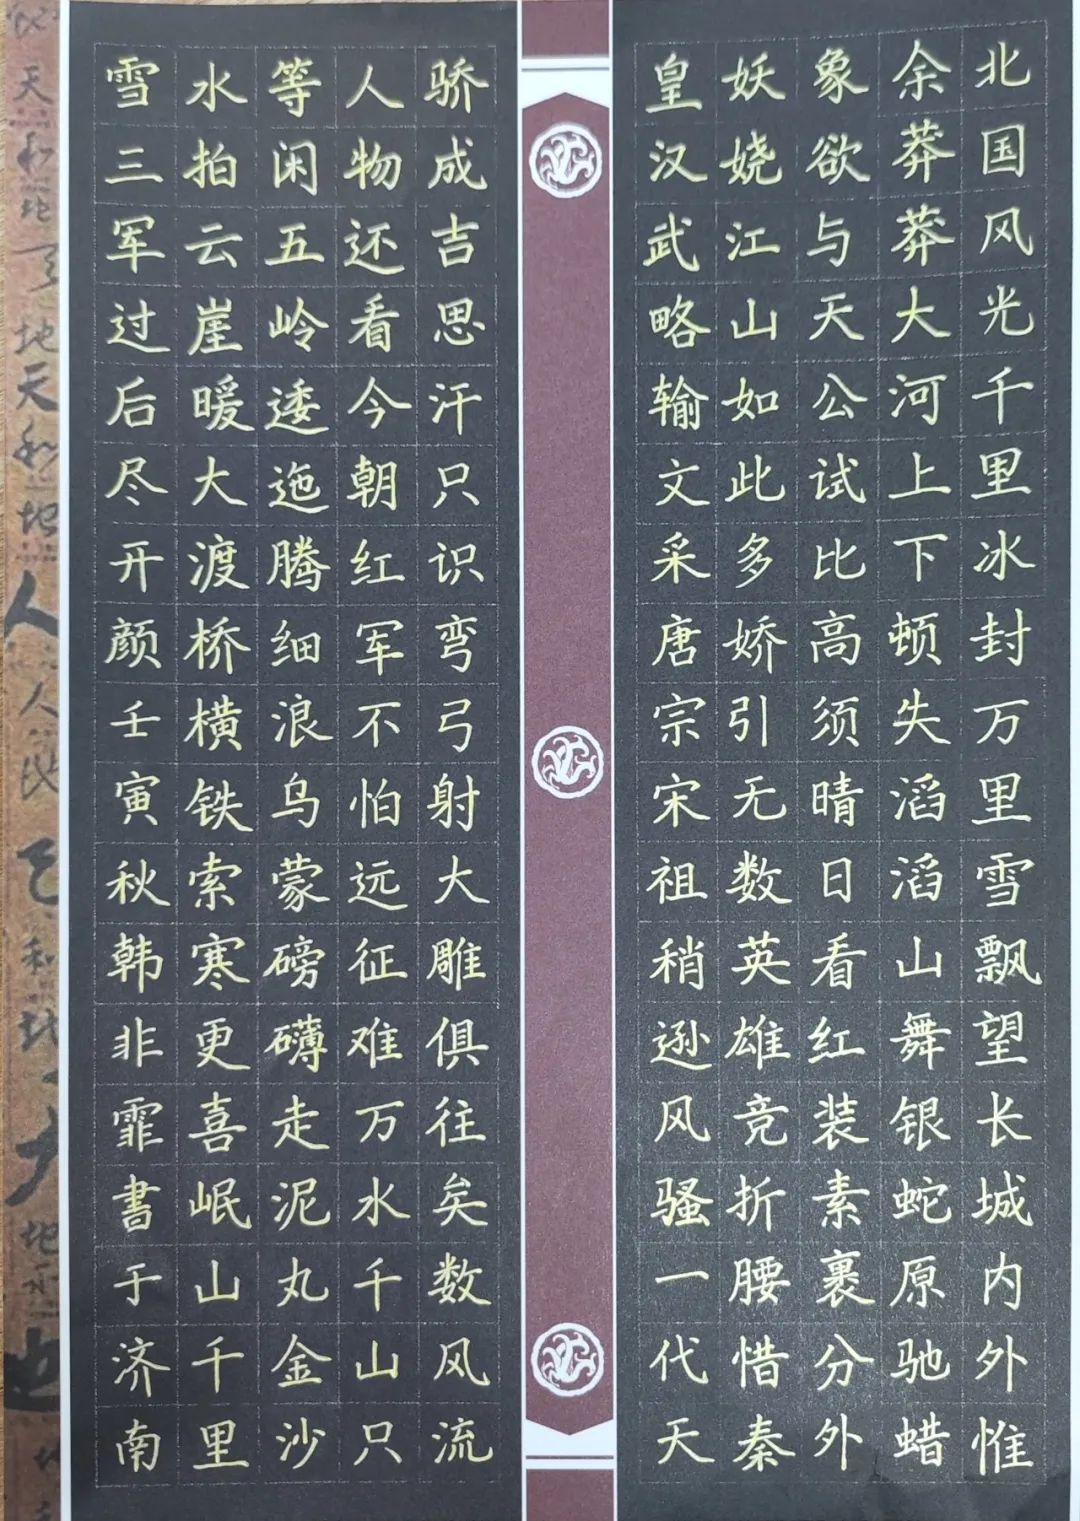 北国风光千里冰封万里雪飘望长城内外惟
余莽莽大河上下顿失滔滔山舞银蛇原驰蜡
象欲与天公试比高须晴日看红装素裹分外
妖娆江山如此多娇引无数英雄竞折腰惜秦
皇汉武略输文采唐宗宋祖稍逊风骚一代天
骄成吉思汗只识弯弓射大雕俱往矣数风流
人物还看今朝红军不怕远征难万水千山只
等闲五岭逶迤腾细浪乌蒙磅礴走泥丸金沙
水拍云崖暖大渡桥横铁索寒更喜岷山千里
雪三军过后尽开颜壬寅秋韩非霏書于济南